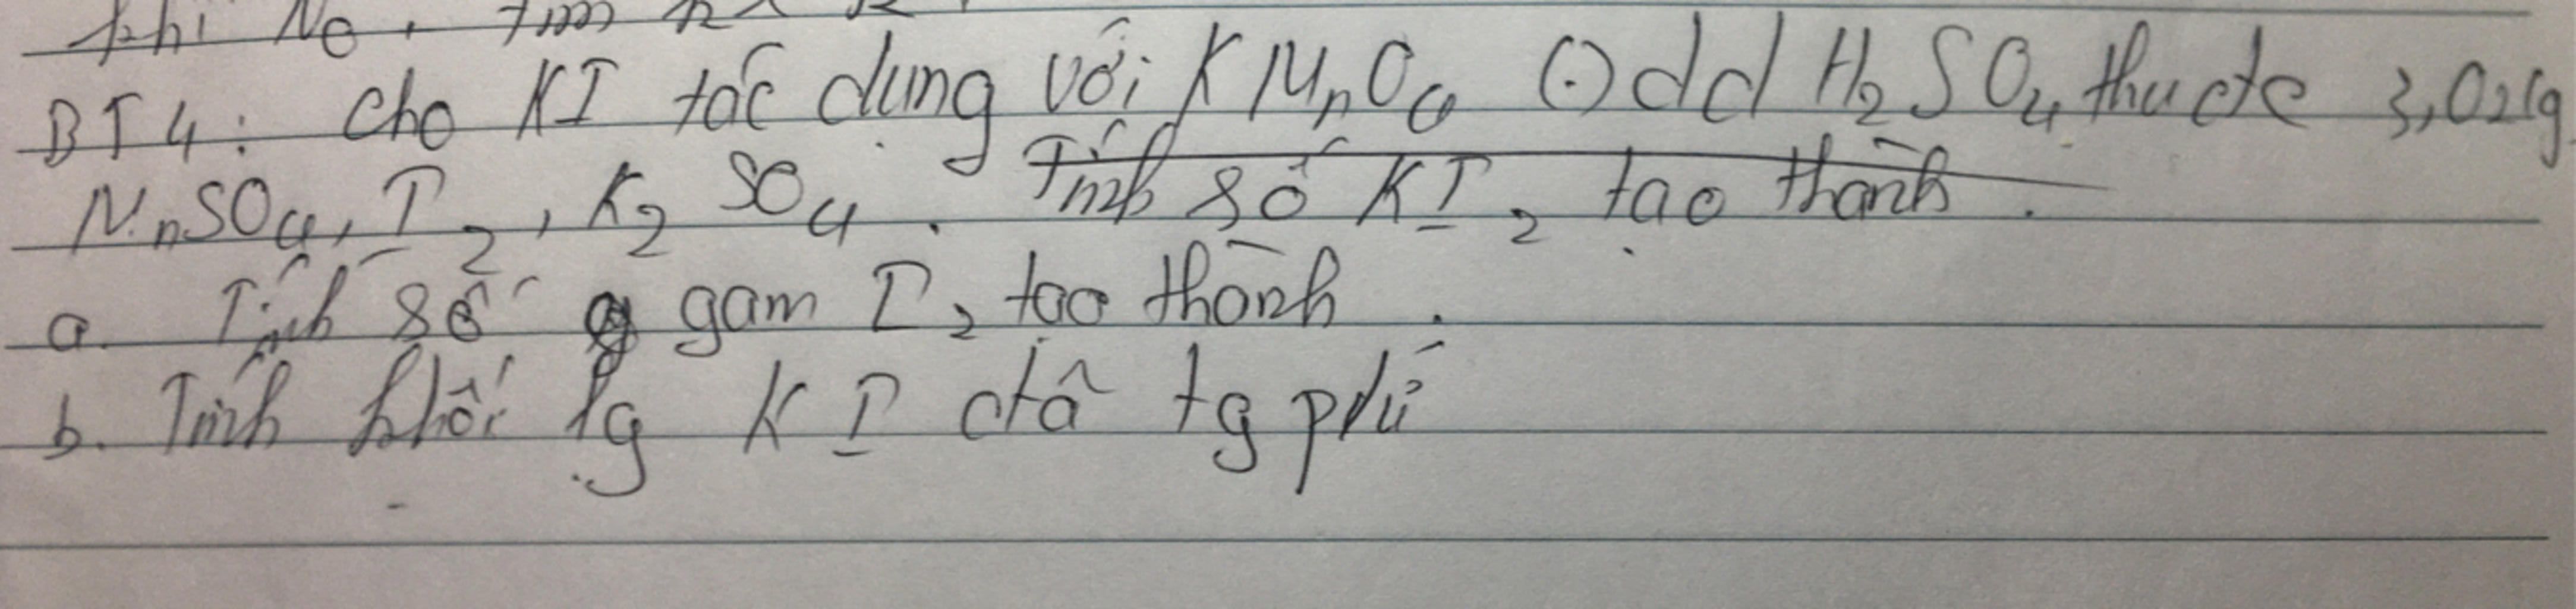 khí No, tìm
BT4: Cho KI tác dụng với KMnO4 (.) dd H2SO4 thu đc 3,02g
MnSO4, I2, K2SO4. Tính số KI2 tạo thành.
a. Tính số g gam I2 tạo thành.
b. Tính khối lg KI đã tg pứ